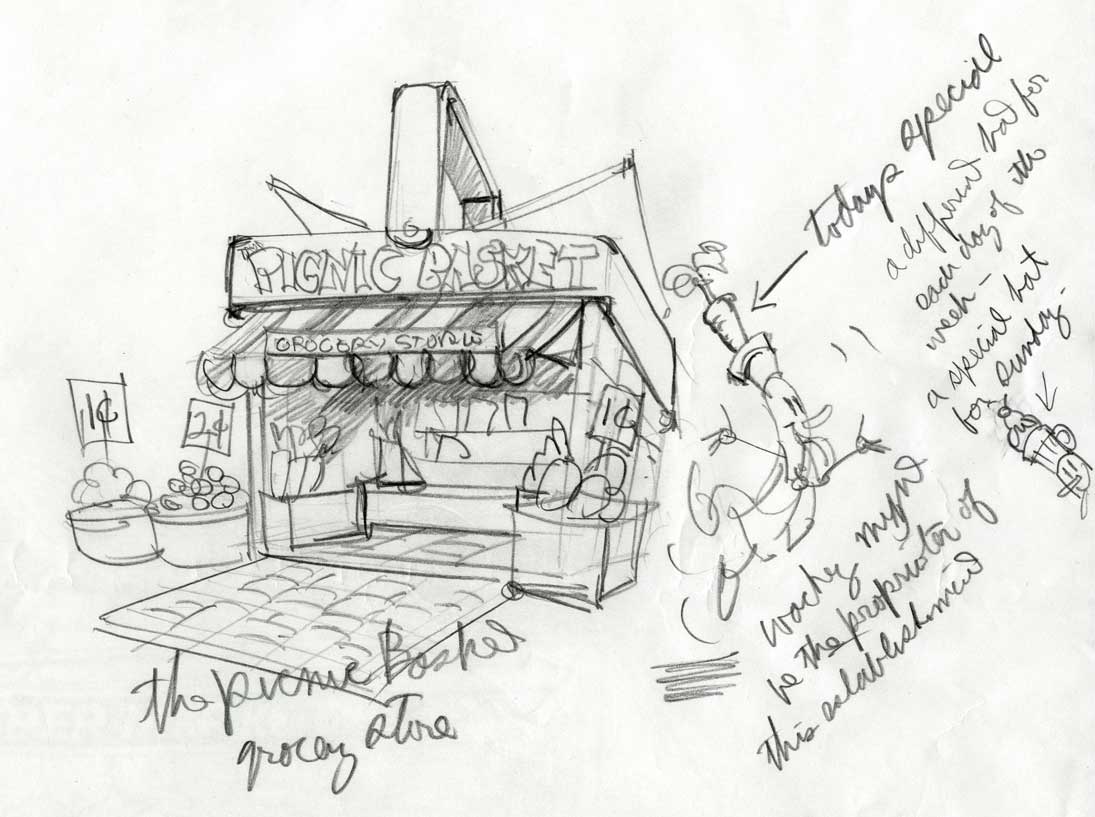 THE
PICNIC BASKET
GROCERY STORE
1¢
2¢
1¢
the picnic Basket
grocery store
todays special
a different hat for
each day of the
week -
a special hat
for sunday.
wacky might
be the proprietor of
this establishment